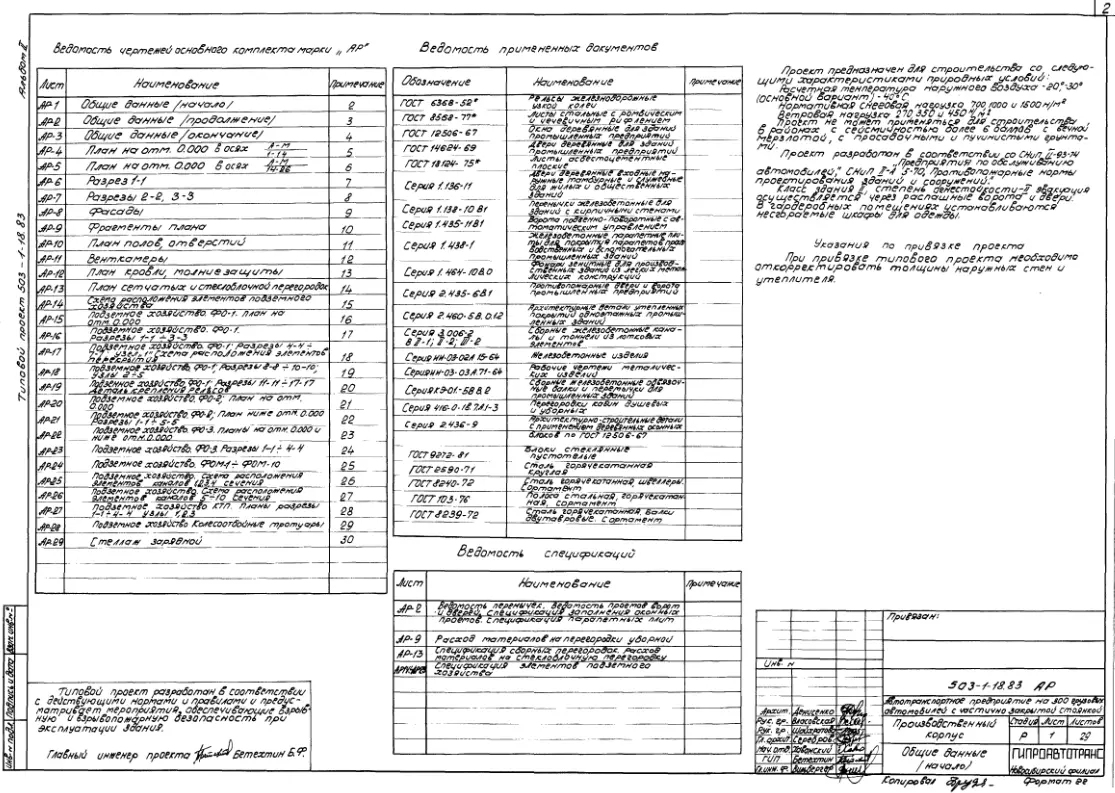 2
Альбом II
Типовой проект 503-1-18.83
Ведомость чертежей основного комплекта марки „АР"
Лист Наименование Примечание
АР-1 Общие данные /начало/ 2
АР-2 Общие данные /продолжение/ 3
АР-3 Общие данные /окончание/ 4
АР-4 План на отм. 0.000 в осях А-М 1-14 5
АР-5 План на отм. 0.000 в осях А-М 14-26 6
АР-6 Разрез 1-1 7
АР-7 Разрезы 2-2, 3-3 8
АР-8 Фасады 9
АР-9 Фрагменты плана 10
АР-10 План полов, отверстий 11
АР-11 Венткамеры 12
АР-12 План кровли, молниезащиты 13
АР-13 План сетчатых и стеклоблочной перегородок 14
АР-14 Схема расположения элементов подземного
хозяйства 15
АР-15 Подземное хозяйство. ФО-1. план на
отм. 0.000 16
АР-16 Подземное хозяйство. ФО-1.
Разрезы 1-1 ÷ 3-3 17
АР-17 Подземное хозяйство. ФО-1; Разрезы 4-4 ÷
7-7. Узел 1. Схема расположения элементов
перекрытия 18
АР-18 Подземное хозяйство. ФО-1; Разрезы 8-8 ÷ 10-10;
Узлы 2÷5 19
АР-19 Подземное хозяйство. ФО-1; Разрезы 11-11 ÷ 17-17
Деталь крепления рельсов 20
АР-20 Подземное хозяйство. ФО-2; план на отм.
0.000 21
АР-21 Подземное хозяйство. ФО-2; План ниже отм. 0.000
Разрезы 1-1 ÷ 5-5 22
АР-22 Подземное хозяйство. ФО-3. планы на отм. 0.000 и
ниже отм. 0.000 23
АР-23 Подземное хозяйство. ФО-3. Разрезы 1-1 ÷ 4-4 24
АР-24 Подземное хозяйство. ФОМ-1 ÷ ФОМ-10 25
АР-25 Подземное хозяйство. Схема расположения
элементов каналов 1,2,3,4 сечения 26
АР-26 Подземное хозяйство. Схема расположения
элементов каналов 5-10 Сечения 27
АР-27 Подземное хозяйство КТП. Планы разрезы
1-1÷4-4 узлы 1,2,3 28
АР-28 Подземное хозяйство Колесоотбойные тротуары 29
АР-29 Стеллаж зарядной 30
Ведомость примененных документов
Обозначение Наименование Примечание
ГОСТ 6368-52* Рельсы железнодорожные
узкой колеи
ГОСТ 8568-77* Листы стальные с ромбическим
и чечевичным рифлением
ГОСТ 12506-67 Окна деревянные для зданий
промышленных предприятий
ГОСТ 14624-69 Двери деревянные для зданий
промышленных предприятий
ГОСТ 18124-75* Листы асбестоцементные
плоские
Серия 1.136-11 Двери деревянные входные на-
ружные тамбурные и служебные
для жилых и общественных
зданий
Серия 1.138-10 В1 Перемычки железобетонные для
зданий с кирпичными стенами
Серия 1.435-11В1 Ворота подвенно-поворотные с ав-
томатическим управлением
Серия 1.438-1 Железобетонные парапетные пли-
ты для покрытия парапетов прои-
зводственных и вспомогательных
промышленных зданий
Серия 1.464-10В.0 Фонари зенитные для производ-
ственных зданий из легких метал-
лических конструкций
Серия 2.435-6В.1 Противопожарные двери и ворота
промышленных предприятий
Серия 2.460-5В.0.12 Архитектурные детали утепленных
покрытий одноэтажных промыш-
ленных зданий
Серия 3.006-2
В II-1; II-2; III-2 Сборные железобетонные кана-
лы и тоннели из лотковых
элементов
Серия ИИ-03-02А 15-64 Железобетонные изделия
Серия ИИ-03-03А.71-64 Рабочие чертежи металличес-
ких изделий
Серия КЭ-01-58 В.2 Сборные железобетонные обвязоч-
ные балки и перемычки для
промышленных зданий
Серия 416-0-18.7Л1-3 Перегородки кабин душевых
и уборных
Серия 2.436-9 Архитектурно-строительные детали
с применением деревянных оконных
блоков по ГОСТ 12506-67
ГОСТ 9272-81 Блоки стеклянные
пустотелые
ГОСТ 2590-71 Сталь горячекатанная
круглая
ГОСТ 8240-72 Сталь горячекатанная, швеллеры.
Сортамент
ГОСТ 103-76 Полоса стальная, горячекатан-
ная, сортамент
ГОСТ 8239-72 Сталь горячекатанная. Балки
двутавровые. Сортамент
Ведомость спецификаций
Лист Наименование Примечание
АР-2 Ведомость перемычек. Ведомость проемов ворот
и дверей. Спецификация заполнения оконных
проемов. Спецификация парапетных плит
АР-9 Расход материалов на перегородки уборной
АР-13 Спецификация сборных перегородок. расход
материалов на стеклоблочную перегородку
Спецификация элементов подземного
хозяйства
Проект предназначен для строительства со следую-
щими характеристиками природных условий:
Расчетная температура наружного воздуха -20°,-30°
(основной вариант); -40°С
Нормативная снеговая нагрузка 700, 1000 и 1500 Н/м²
Ветровая нагрузка 270, 350 и 450 Н/м²
Проект не может применяться для строительства
в районах с сейсмичностью более 6 баллов с вечной
мерзлотой, с просадочными и пучинистыми грунта-
ми.
Проект разработан в соответствии со СНиП II-93-74
„Предприятия по обслуживанию
автомобилей", СНиП II-А 5-70, „Противопожарные нормы
проектирования зданий и сооружений".
Класс здания II, степень огнестойкости-II эвакуация
осуществляется через распашные ворота и двери.
В гардеробных помещениях устанавливаются
несгораемые шкафы для одежды.
Указания по привязке проекта
При привязке типового проекта необходимо
откорректировать толщины наружных стен и
утеплителя.
Типовой проект разработан в соответствии
с действующими нормами и правилами и предус-
матривает мероприятия, обеспечивающие взрыв-
ную и взрывопожарную безопасность при
эксплуатации здания.
Главный инженер проекта Бетехтин Б.Ф.
Инв. N подл. Подпись и дата Взам. инв. N
Привязан:
Инв. N
503-1-18.83 АР
Архит. Денисенко
Рук. гр. Власовская
Рук. гр.
Гл. архит. Серебров
Нач. отд. Хованский
ГИП Бетехтин
Гл. инж. ф.
Автотранспортное предприятие на 300 грузовых
автомобилей с частично закрытой стоянкой
Производственный
корпус
Стадия Лист Листов
Р 1 29
Общие данные
/начало/
ГИПРОАВТОТРАНС
Новосибирский филиал
Копировал
Формат 22